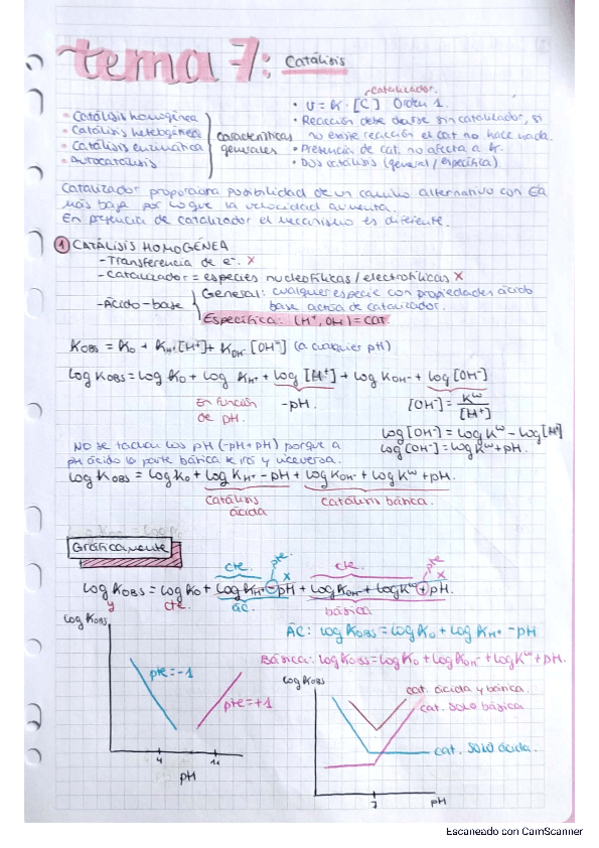 tema 7: Catálisis
catalizador.
- Catálisis homogénea
- Catálisis heterogénea
- Catálisis enzimática
- Autocatálisis
Características generales
• v = k · [C] Orden 1.
• Reacción debe darse sin catalizador, si
no existe reacción el cat no hace nada.
• Presencia de cat. no afecta a
• Dos catálisis (general / específica)
Catalizador proporciona posibilidad de un camino alternativo con Ea
más baja por lo que la velocidad aumenta.
En presencia de catalizador el mecanismo es diferente.
1 CATÁLISIS HOMOGÉNEA
- Transferencia de e-. x
- Catalizador = especies nucleofílicas / electrofílicas x
- Ácido-base
General: cualquier especie con propiedades ácido
base actúa de catalizador.
Específica: (H+, OH-) = cat.
KOBS = K0 + KH+ [H+] + KOH- [OH-] (a cualquier pH)
log KOBS = log K0 + log KH+ + log [H+] + log KOH- + log [OH-]
En función
de pH.
-pH.
[OH-] = Kw / [H+]
log [OH-] = log Kw - log [H+]
log [OH-] = log Kw + pH.
NO se tachan los pH (-pH + pH) porque a
pH ácido la parte básica se irá y viceversa.
log KOBS = log K0 + log KH+ - pH + log KOH- + log Kw + pH.
catálisis
ácida
catálisis básica.
Gráficamente
cte. pte. x cte. pte x
log KOBS = log K0 + log KH+ - pH + log KOH- + log Kw + pH.
y cte. ÁC. básica
ÁC: log KOBS = log K0 + log KH+ - pH
Básica: log KOBS = log K0 + log KOH- + log Kw + pH.
log KOBS
pte = -1
pte = +1
4
pH
log KOBS
cat. ácida y básica.
cat. solo básica
cat. solo ácida.
7 pH
Escaneado con CamScanner